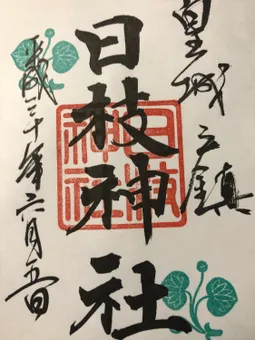 皇城之鎮
日枝神社
平成三十年六月五日
日枝神社